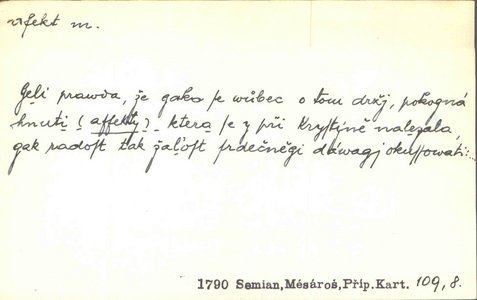 afekt m.
Geli prawda, že gako se wůbec o tom držj, pokogná
hnuti (affekty) ktera se y při Krystýně nalezala,
gak radost tak žalost srdečněgi dáwagj okussowati:
1790 Semian,Mésároš,Příp.Kart. 109, 8.